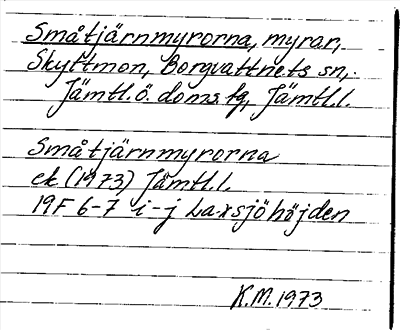 Småtjärnmyrorna, myrar,
Skyttmon, Borgvattnets sn,
Jämtl.ö. doms. fg, Jämtl.l.
Småtjärnmyrorna
ek (1973) Jämtl.l.
19F 6-7 i-j Laxsjöhöjden
K.M. 1973